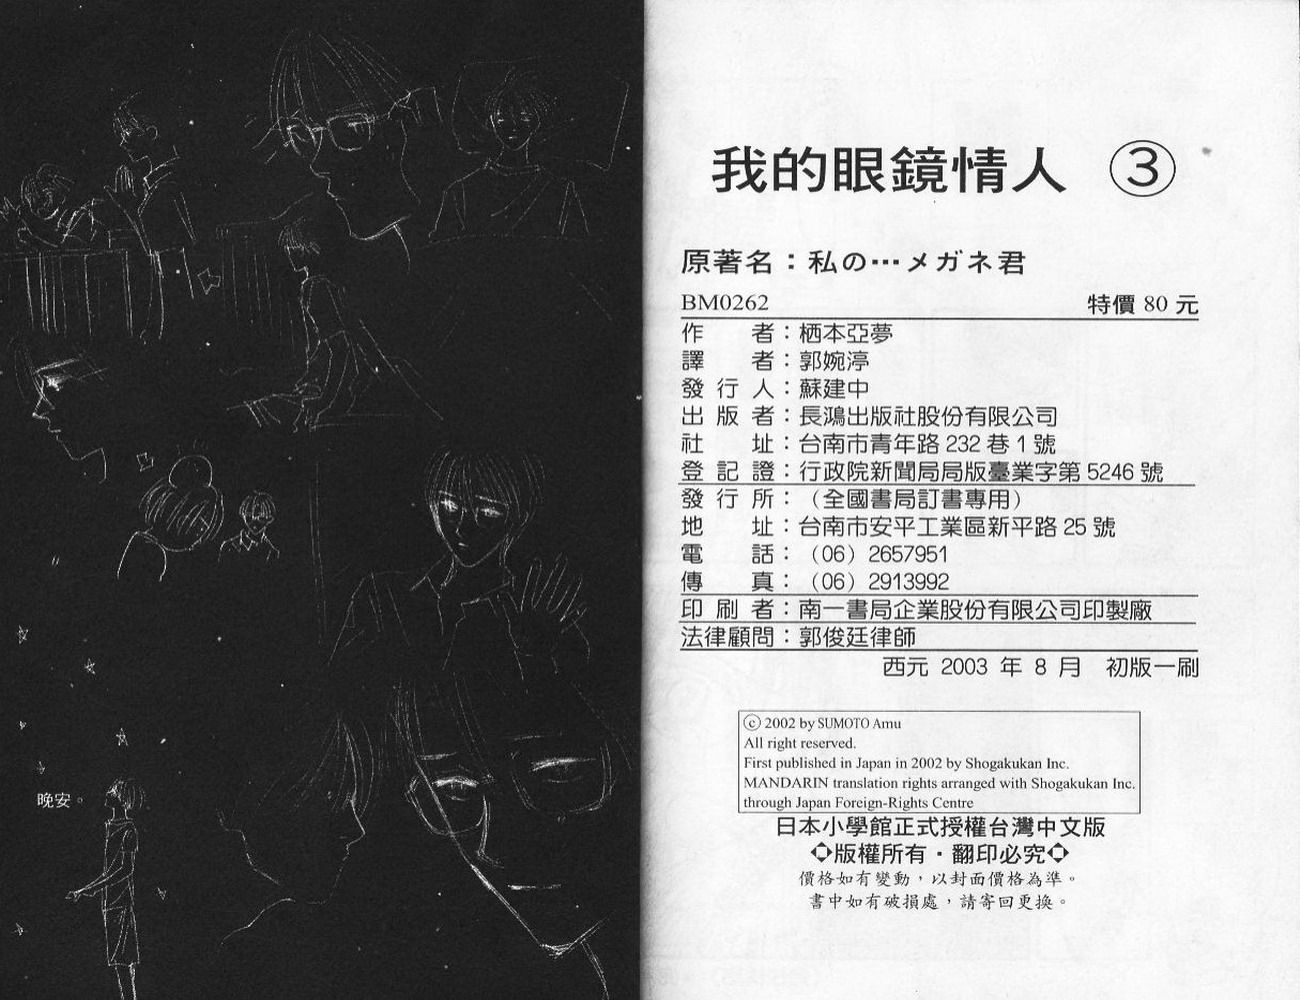 晚安。
我的眼鏡情人 ③
原著名：私の…メガネ君
BM0262 特價 80 元
作者：栖本亞夢
譯者：郭婉渟
發行人：蘇建中
出版者：長鴻出版社股份有限公司
社址：台南市青年路 232 巷 1 號
登記證：行政院新聞局局版臺業字第 5246 號
發行所：（全國書局訂書專用）
地址：台南市安平工業區新平路 25 號
電話：（06）2657951
傳真：（06）2913992
印刷者：南一書局企業股份有限公司印製廠
法律顧問：郭俊廷律師
西元 2003 年 8 月 初版一刷
ⓒ 2002 by SUMOTO Amu
All right reserved.
First published in Japan in 2002 by Shogakukan Inc.
MANDARIN translation rights arranged with Shogakukan Inc.
through Japan Foreign-Rights Centre
日本小學館正式授權台灣中文版
◇版權所有・翻印必究◇
價格如有變動，以封面價格為準。
書中如有破損處，請寄回更換。